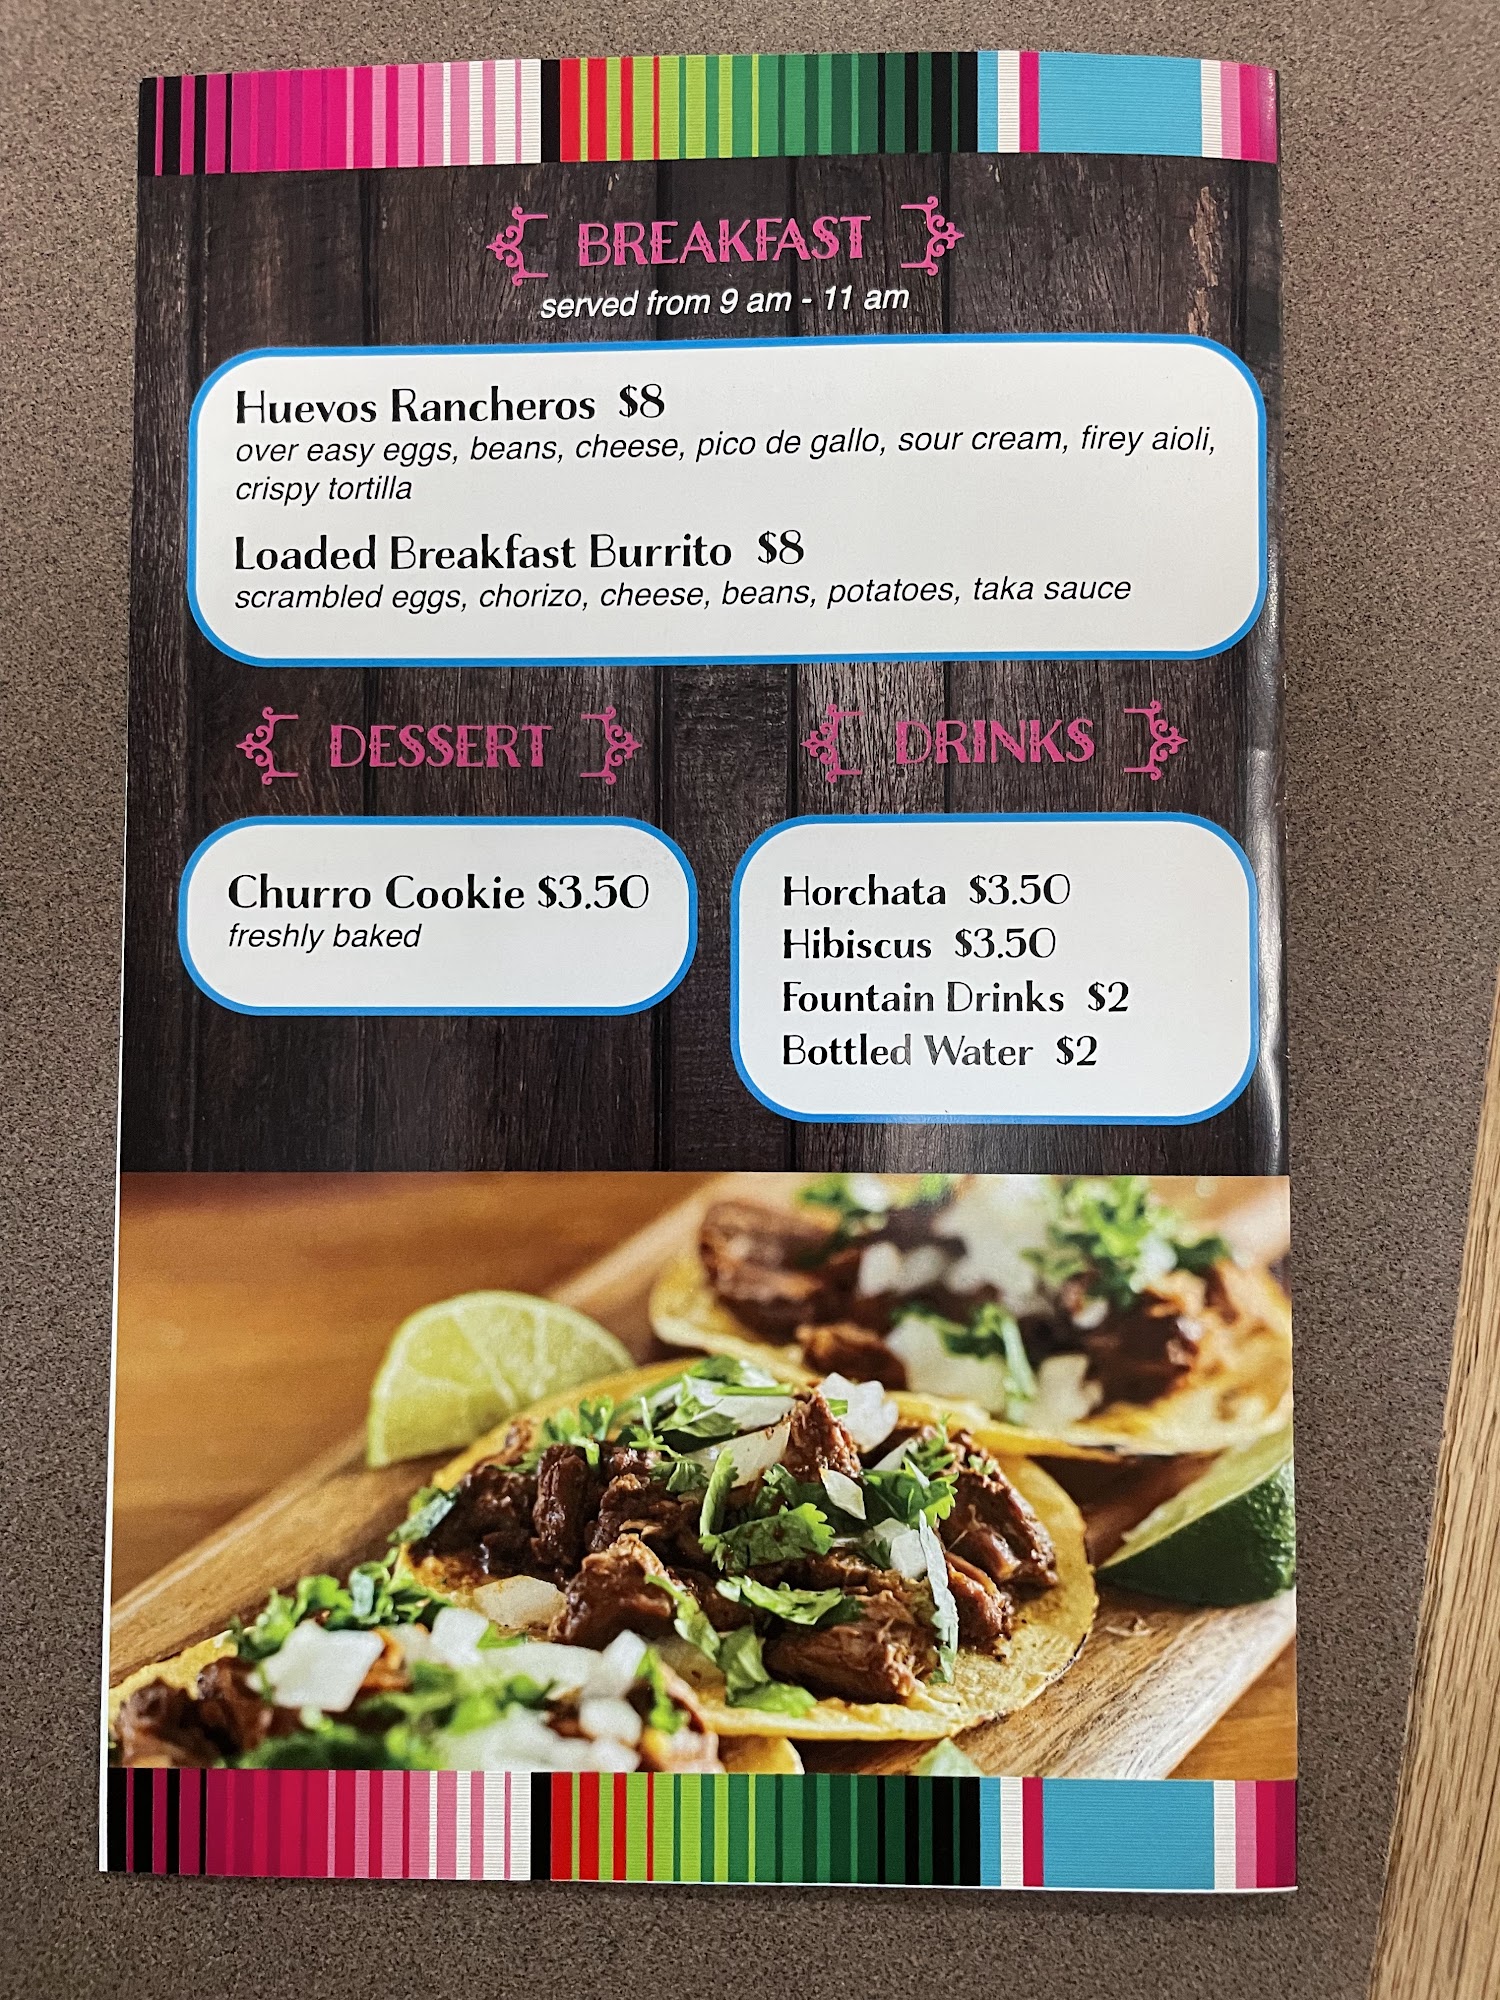 BREAKFAST
served from 9 am - 11 am
Huevos Rancheros $8
over easy eggs, beans, cheese, pico de gallo, sour cream, firey aioli,
crispy tortilla
Loaded Breakfast Burrito $8
scrambled eggs, chorizo, cheese, beans, potatoes, taka sauce
DESSERT
Churro Cookie $3.50
freshly baked
DRINKS
Horchata $3.50
Hibiscus $3.50
Fountain Drinks $2
Bottled Water $2